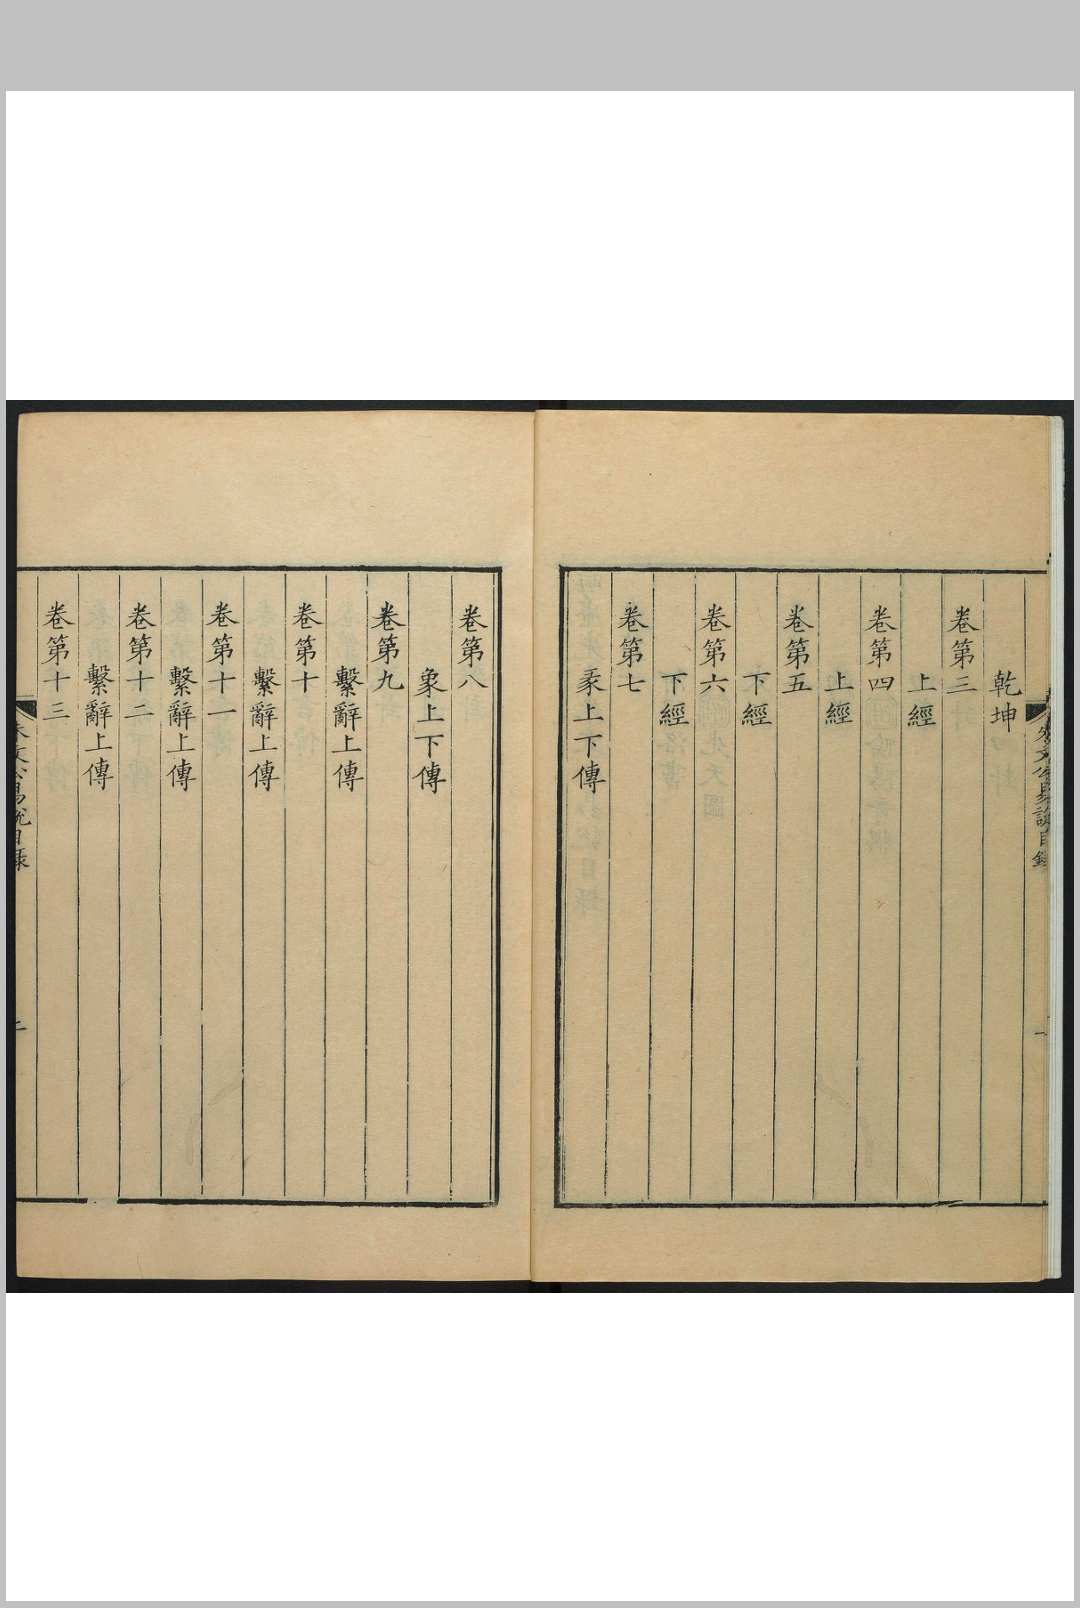 朱文公易說目錄
一
乾坤
卷第三
上經
卷第四
上經
卷第五
下經
卷第六
下經
卷第七
彖上下傳
卷第八
象上下傳
卷第九
繫辭上傳
卷第十
繫辭上傳
卷第十一
繫辭上傳
卷第十二
繫辭上傳
卷第十三
朱文公易說目錄